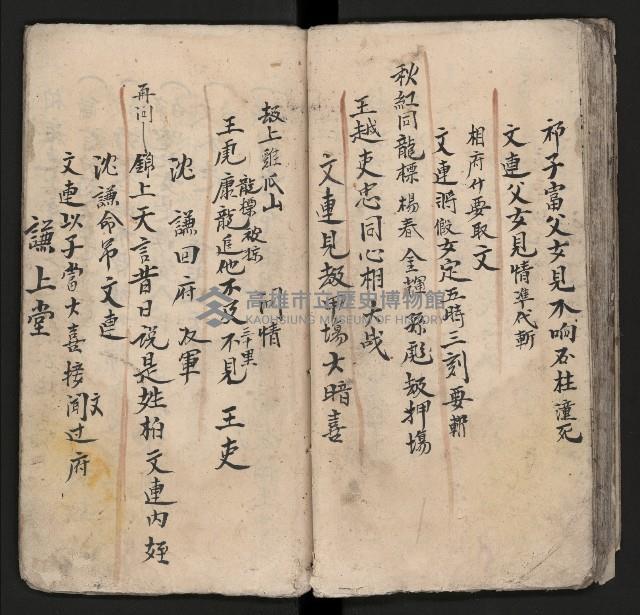 祁子富父女見不响石柱 潼死
文連父女見情準代斬
相府什要取文
文連將假女定五時三刻要斬
秋紅同龍標楊春 金 孫彪 劫押場
王越吏忠同心相 大战
文連見劫押場大暗喜
劫上雞爪山
龍標被掠 同情
王虎康龍追他不及不見 王吏
三十里
沈謙回府 反軍
再问 錦上天言昔日說是姓柏文連內姪
沈謙命吊文連
文連以子富大喜接聞文过府
謙上堂
高雄市立歷史博物館
KAOHSIUNG MUSEUM OF HISTORY